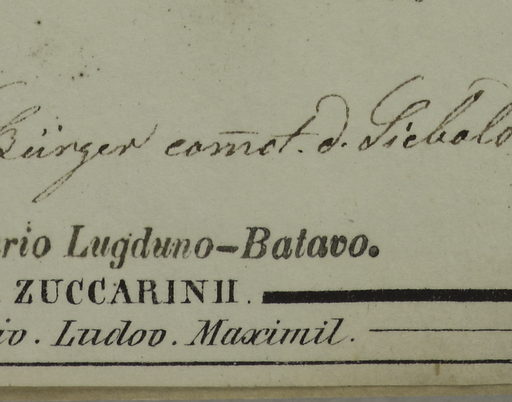 Bürger com̄ct. d. Siebold
rio Lugduno-Batavo.
ZUCCARINII.
io. Ludov. Maximil.